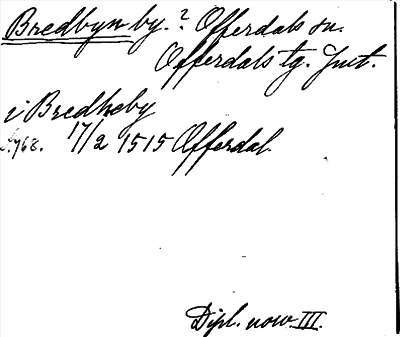 Bredbyn by.? Offerdals sn.
Offerdals tg. Jmt.
i Bredheby
s.768. 17/2 1515 Offerdal.
Dipl. norv. III.